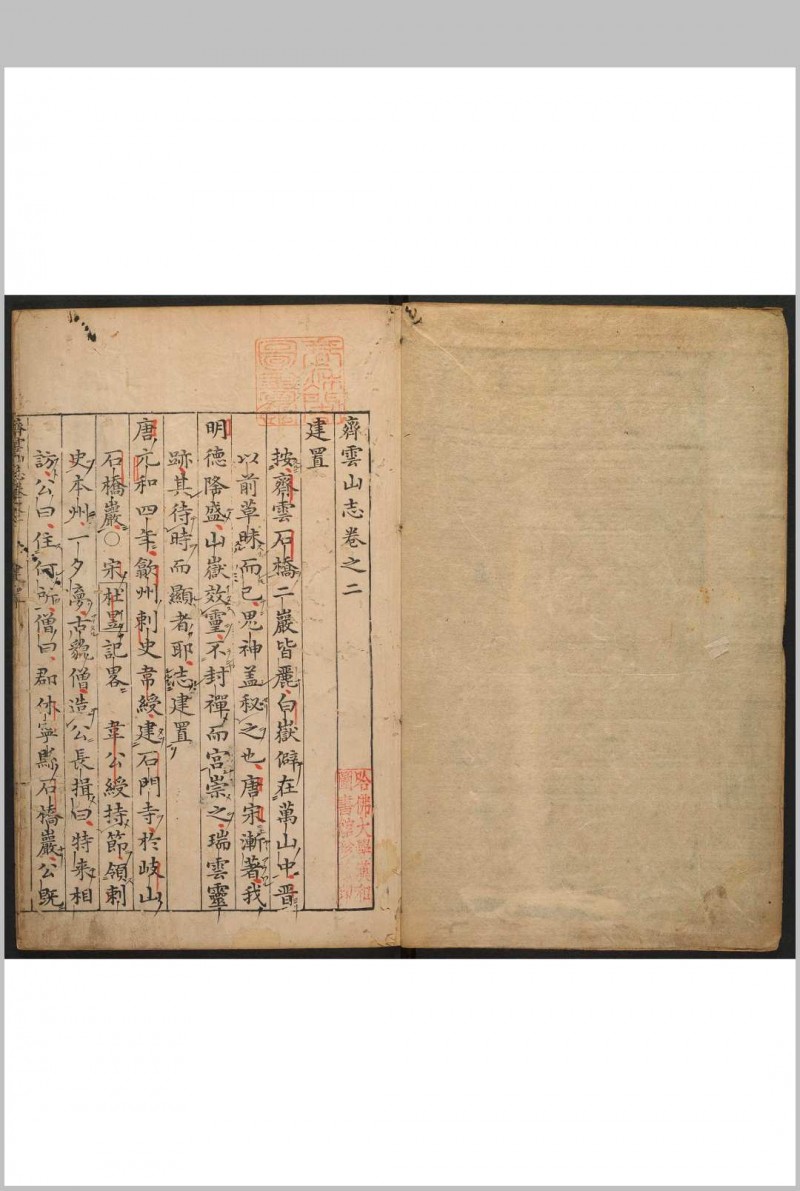 齊雲山志卷之二
建置
按齊雲石橋二巖皆麗白嶽僻在萬山中晋
以前草昧而已鬼神盖秘之也唐宋漸著我
明德隆盛山嶽效靈不封禪而宮崇之瑞雲靈
跡其待時而顯者耶志建置
唐元和四年歙州刺史韋綬建石門寺於岐山
石橋巖○宋杜㬅記畧 韋公綬持節領刺
史本州一夕夢古貌僧造公長揖曰特来相
訪公曰住何所僧曰郡休寧縣石橋巖公既
哈佛大學